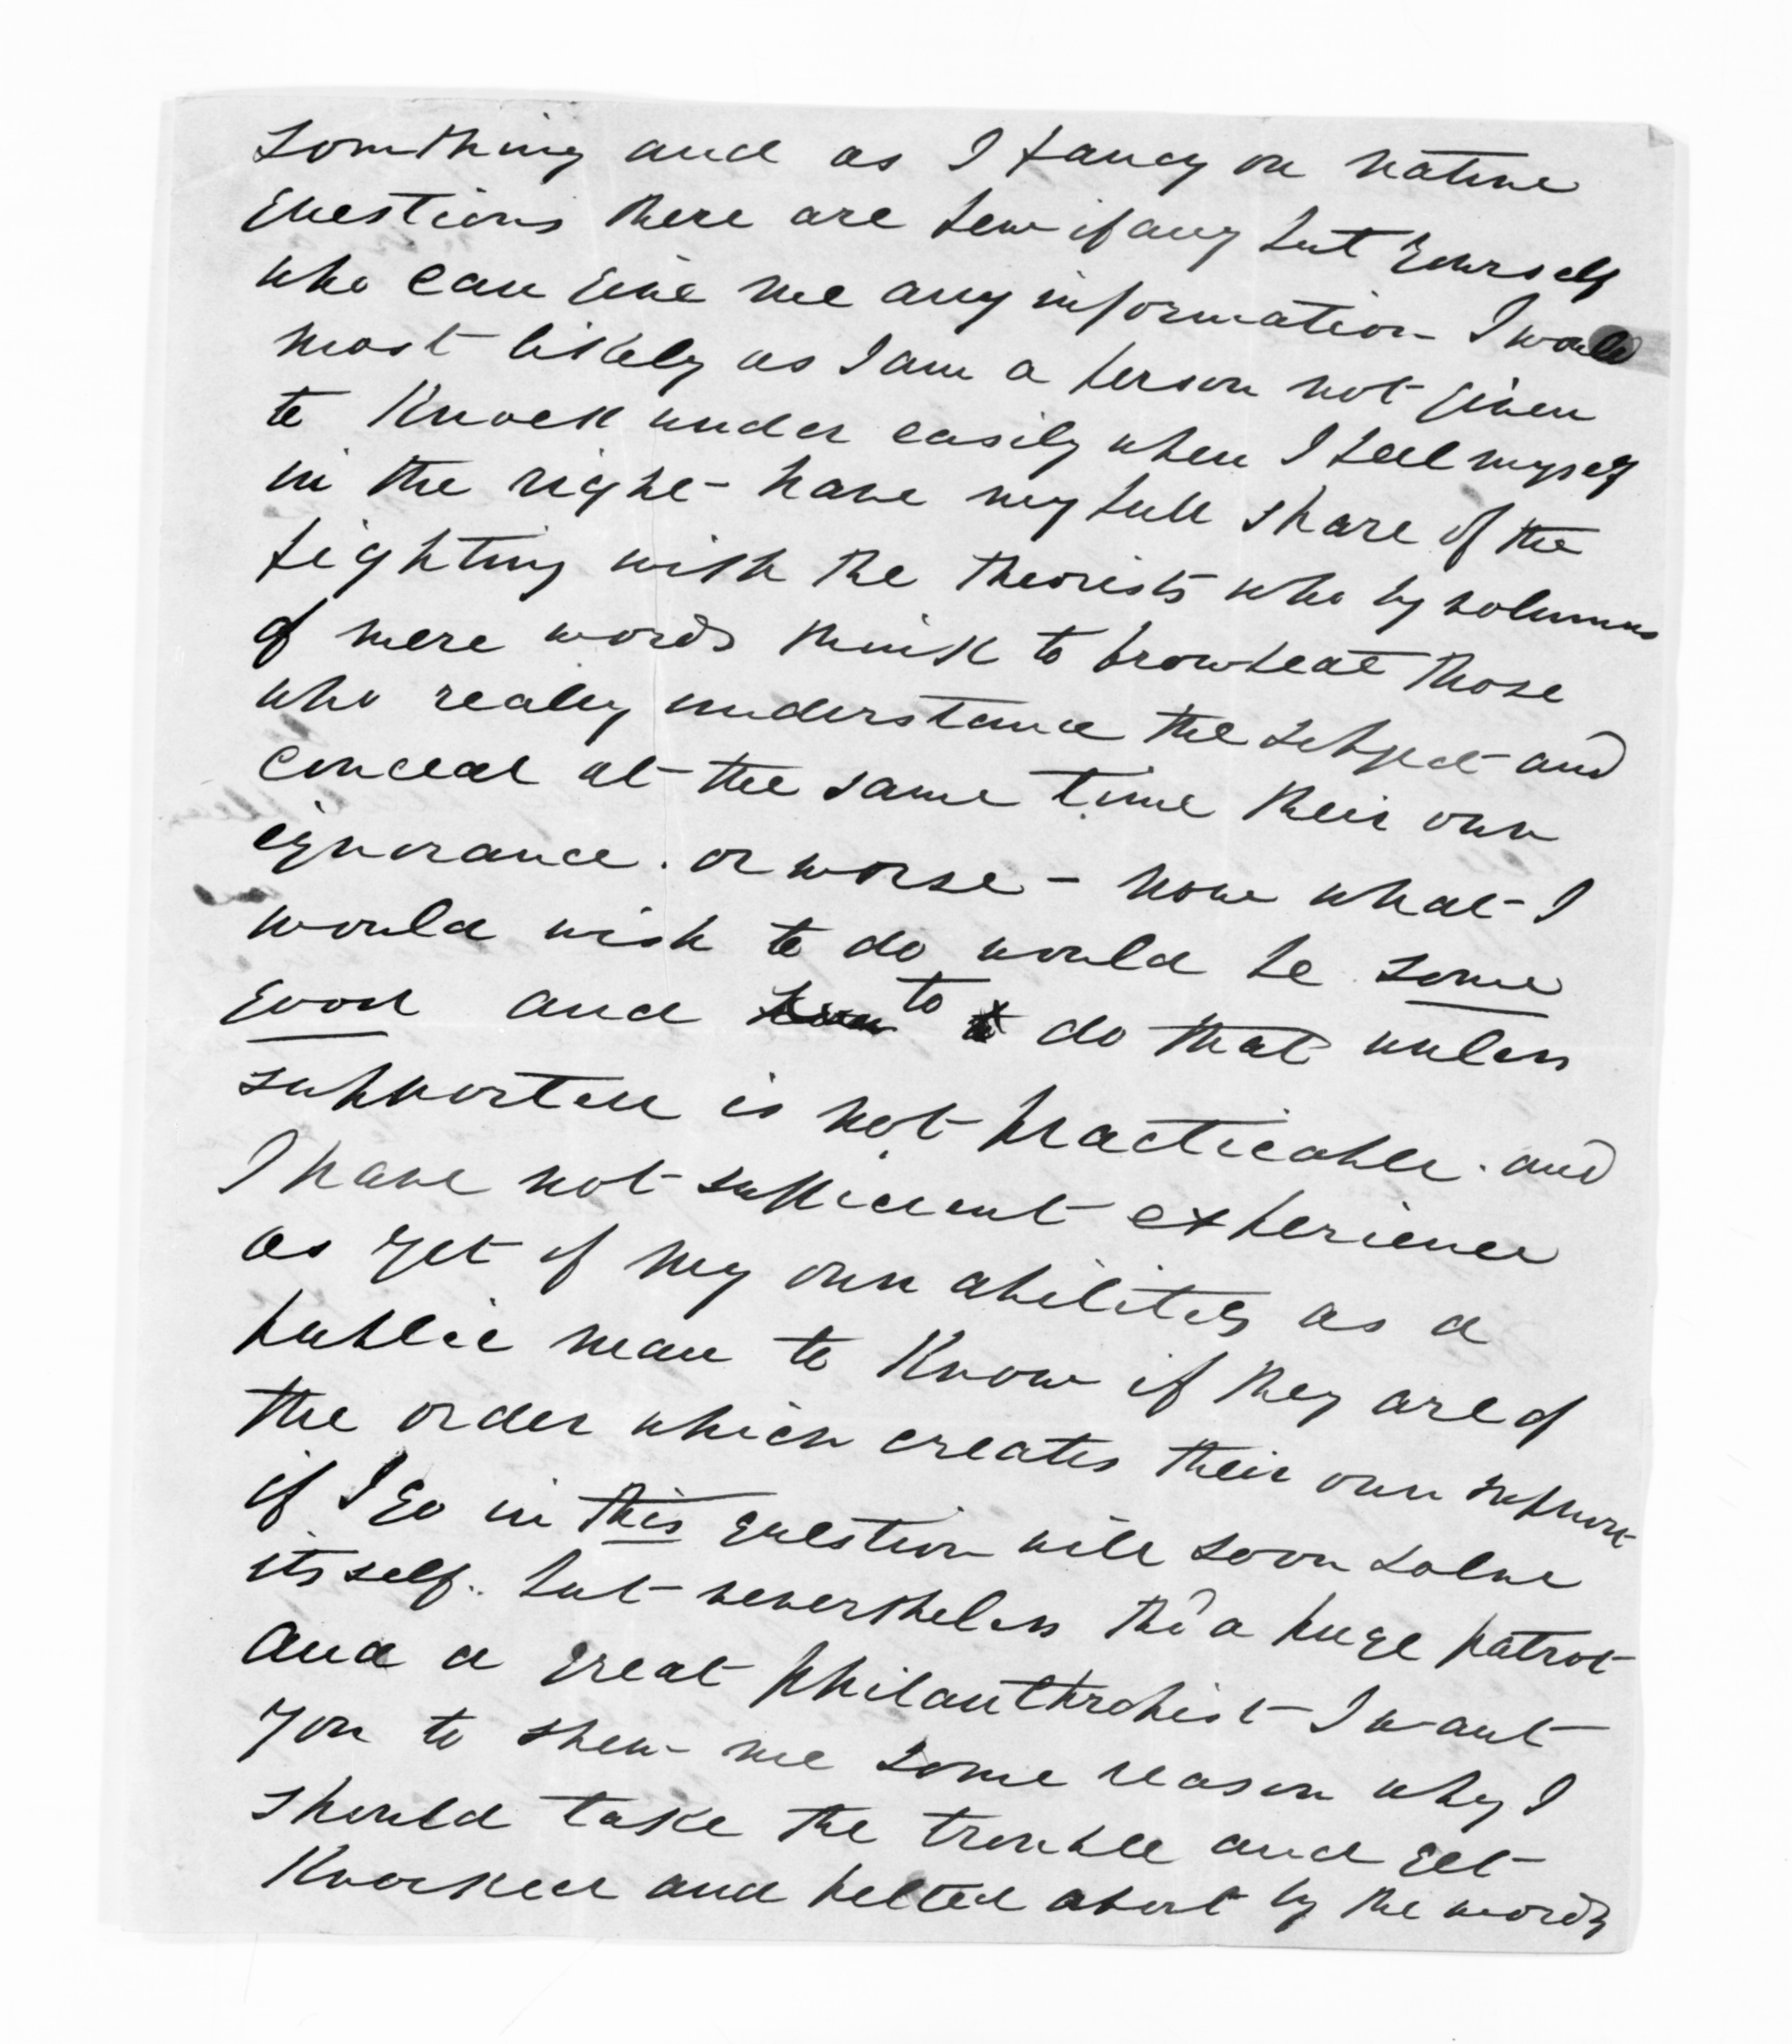 something and as I fancy on native
questions there are few if any but yourself
who can give me any information I would
most likely as I am a person not given
to Knock under easily when I feel myself
in the right - have my full share of the
fighting with the theorists who by volumes
of mere words think to browbeat those
who really understand the subject and
conceal at the same time their own
ignorance. or worse - now what I
would wish to do would be some
good and to do that unless
supported is not practicable. and
I have not sufficient experience
as yet of my own abilities as a
public man to Know if they are of
the order which creates their own support
if I go in this question will soon solve
itsself. but nevertheless tho' a huge patriot
and a great philanthropist I want
you to shew me some reason why I
should take the trouble and get
Knocked and pelted about by the words